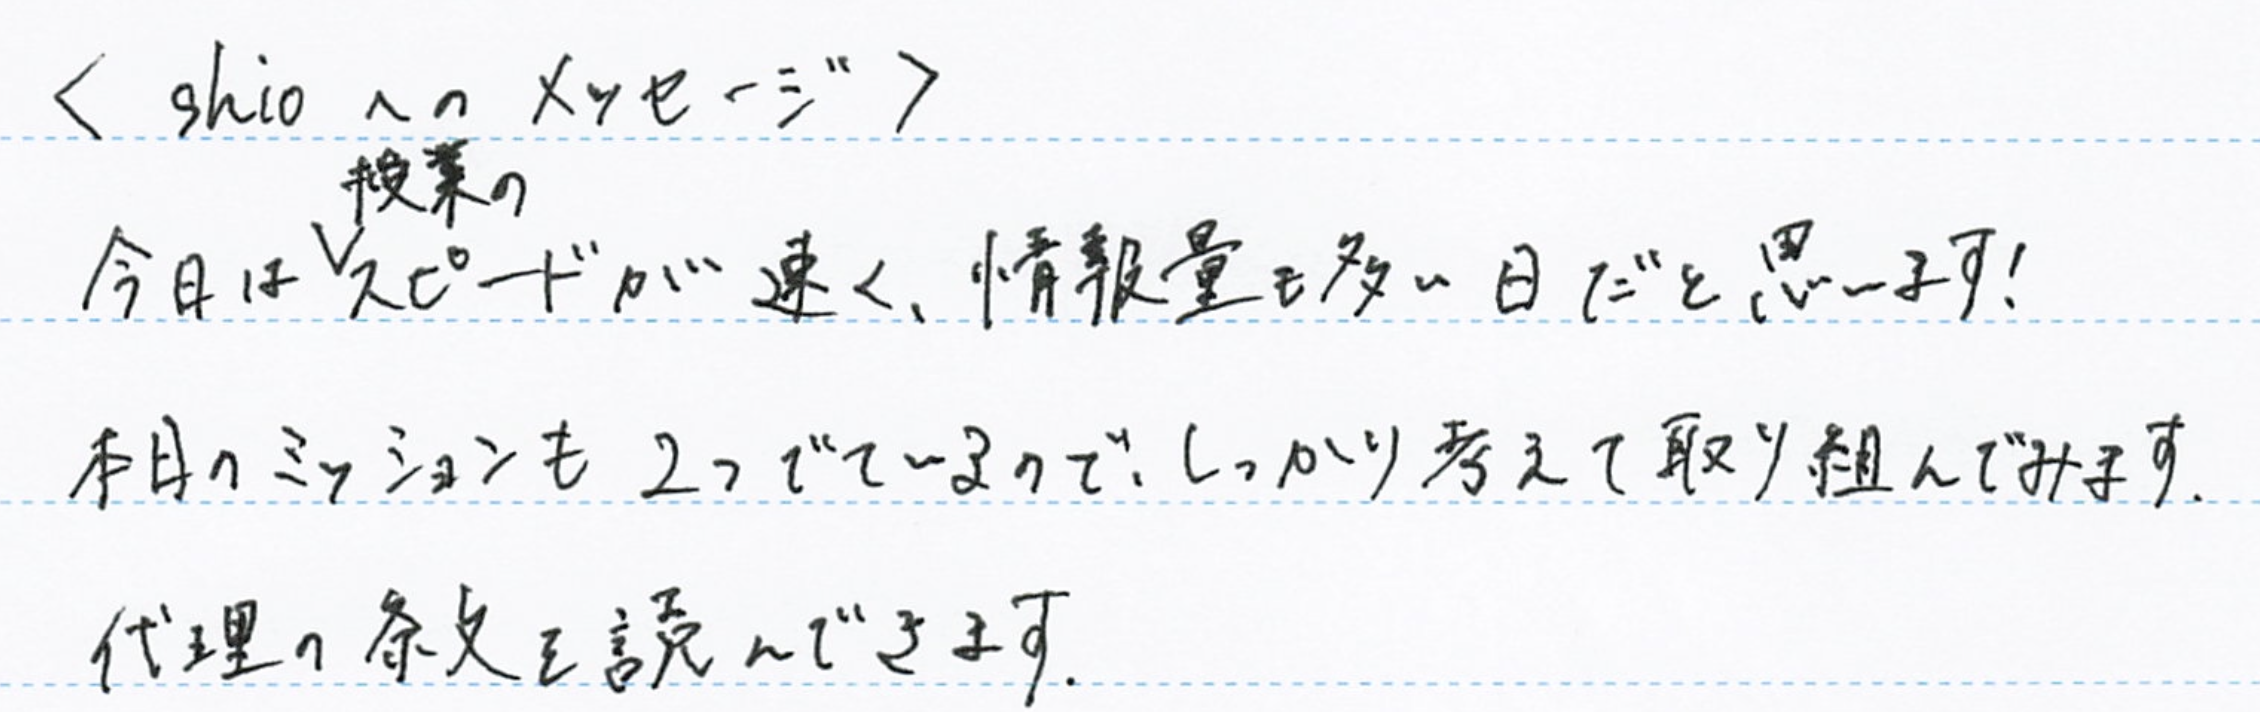 < shioへのメッセージ >
授業の
今日は∨スピードが速く、情報量も多い日だと思います!
本日のミッションも2つでているので、しっかり考えて取り組んでみます.
代理の条文を読んできます.